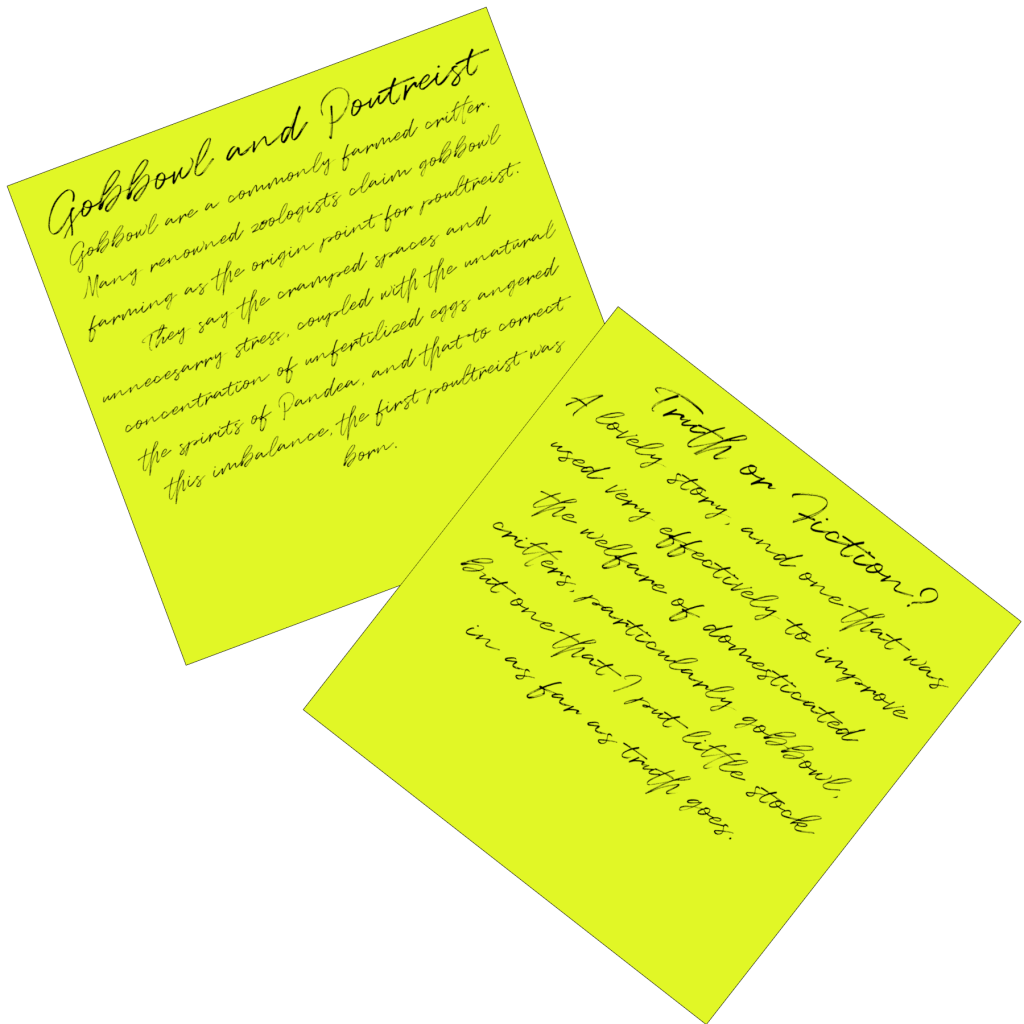 Gobbowl and Poutreist
Gobbowl are a commonly farmed critter.
Many renowned zoologists claim gobbowl
farming as the origin point for poultreist.
They say the cramped spaces and
unnecesarry stress, coupled with the unatural
concentration of unfertilized eggs angered
the spirits of Pandea, and that to correct
this imbalance, the first poultreist was
born.
Truth or Fiction?
A lovely story, and one that was
used very effectively to improve
the welfare of domesticated
critters, particularly gobbowl,
but one that I put little stock
in as far as truth goes.